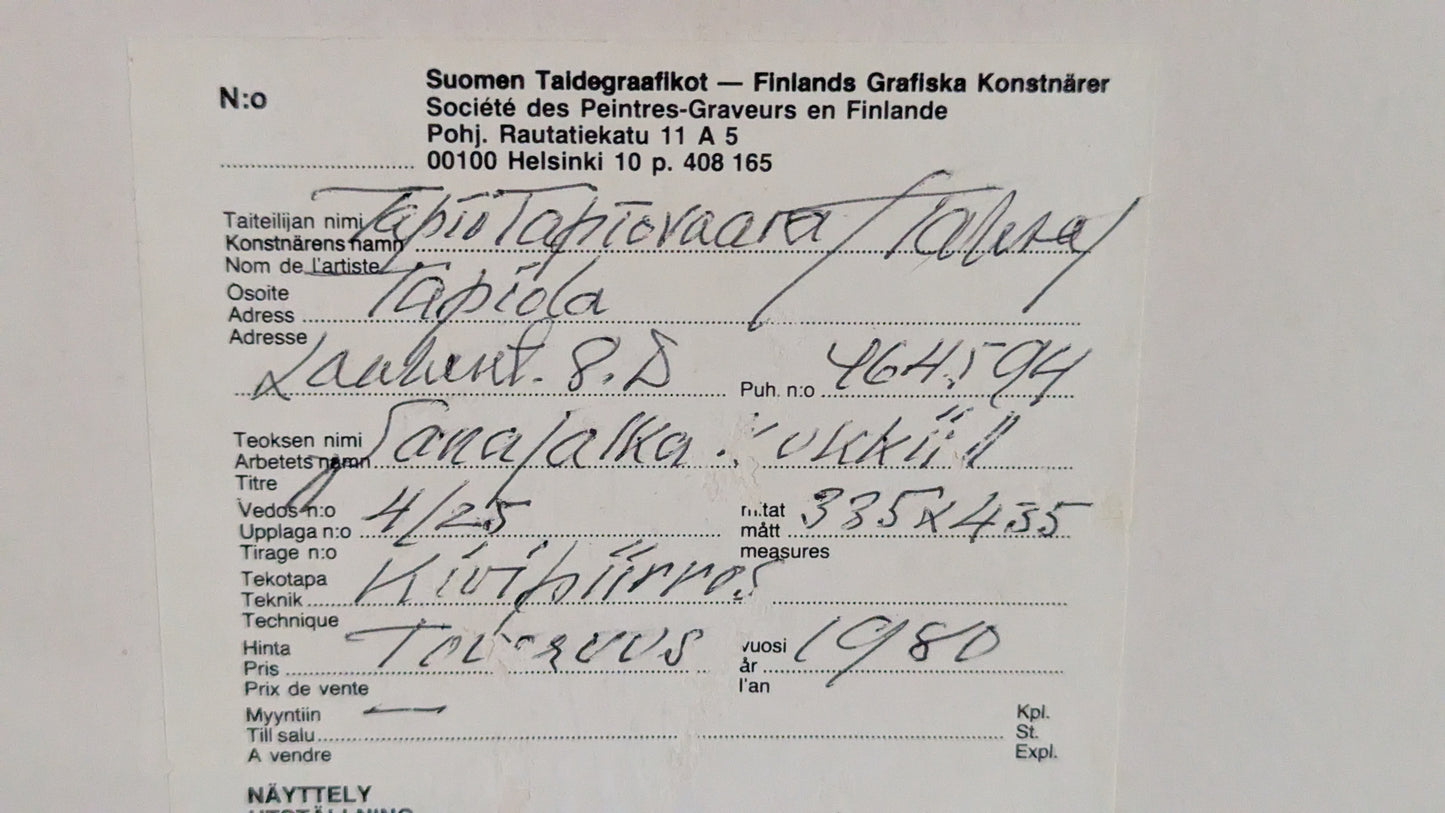 N:o
Suomen Taidegraafikot — Finlands Grafiska Konstnärer
Société des Peintres-Graveurs en Finlande
Pohj. Rautatiekatu 11 A 5
00100 Helsinki 10 p. 408 165
Taiteilijan nimi Tapio Tapiovaara
Konstnärens namn
Nom de l'artiste
Osoite Tapiola
Adress
Adresse
8. D Puh. n:o 464594
Teoksen nimi Sanajalka
Arbetets namn
Titre
Vedos n:o 4/25 mitat 335x435
Upplaga n:o mått
Tirage n:o measures
Tekotapa Kivipiirros
Teknik
Technique
Hinta vuosi 1980
Pris år
Prix de vente l'an
Myyntiin — Kpl.
Till salu St.
A vendre Expl.
NÄYTTELY
UTSTÄLLNING